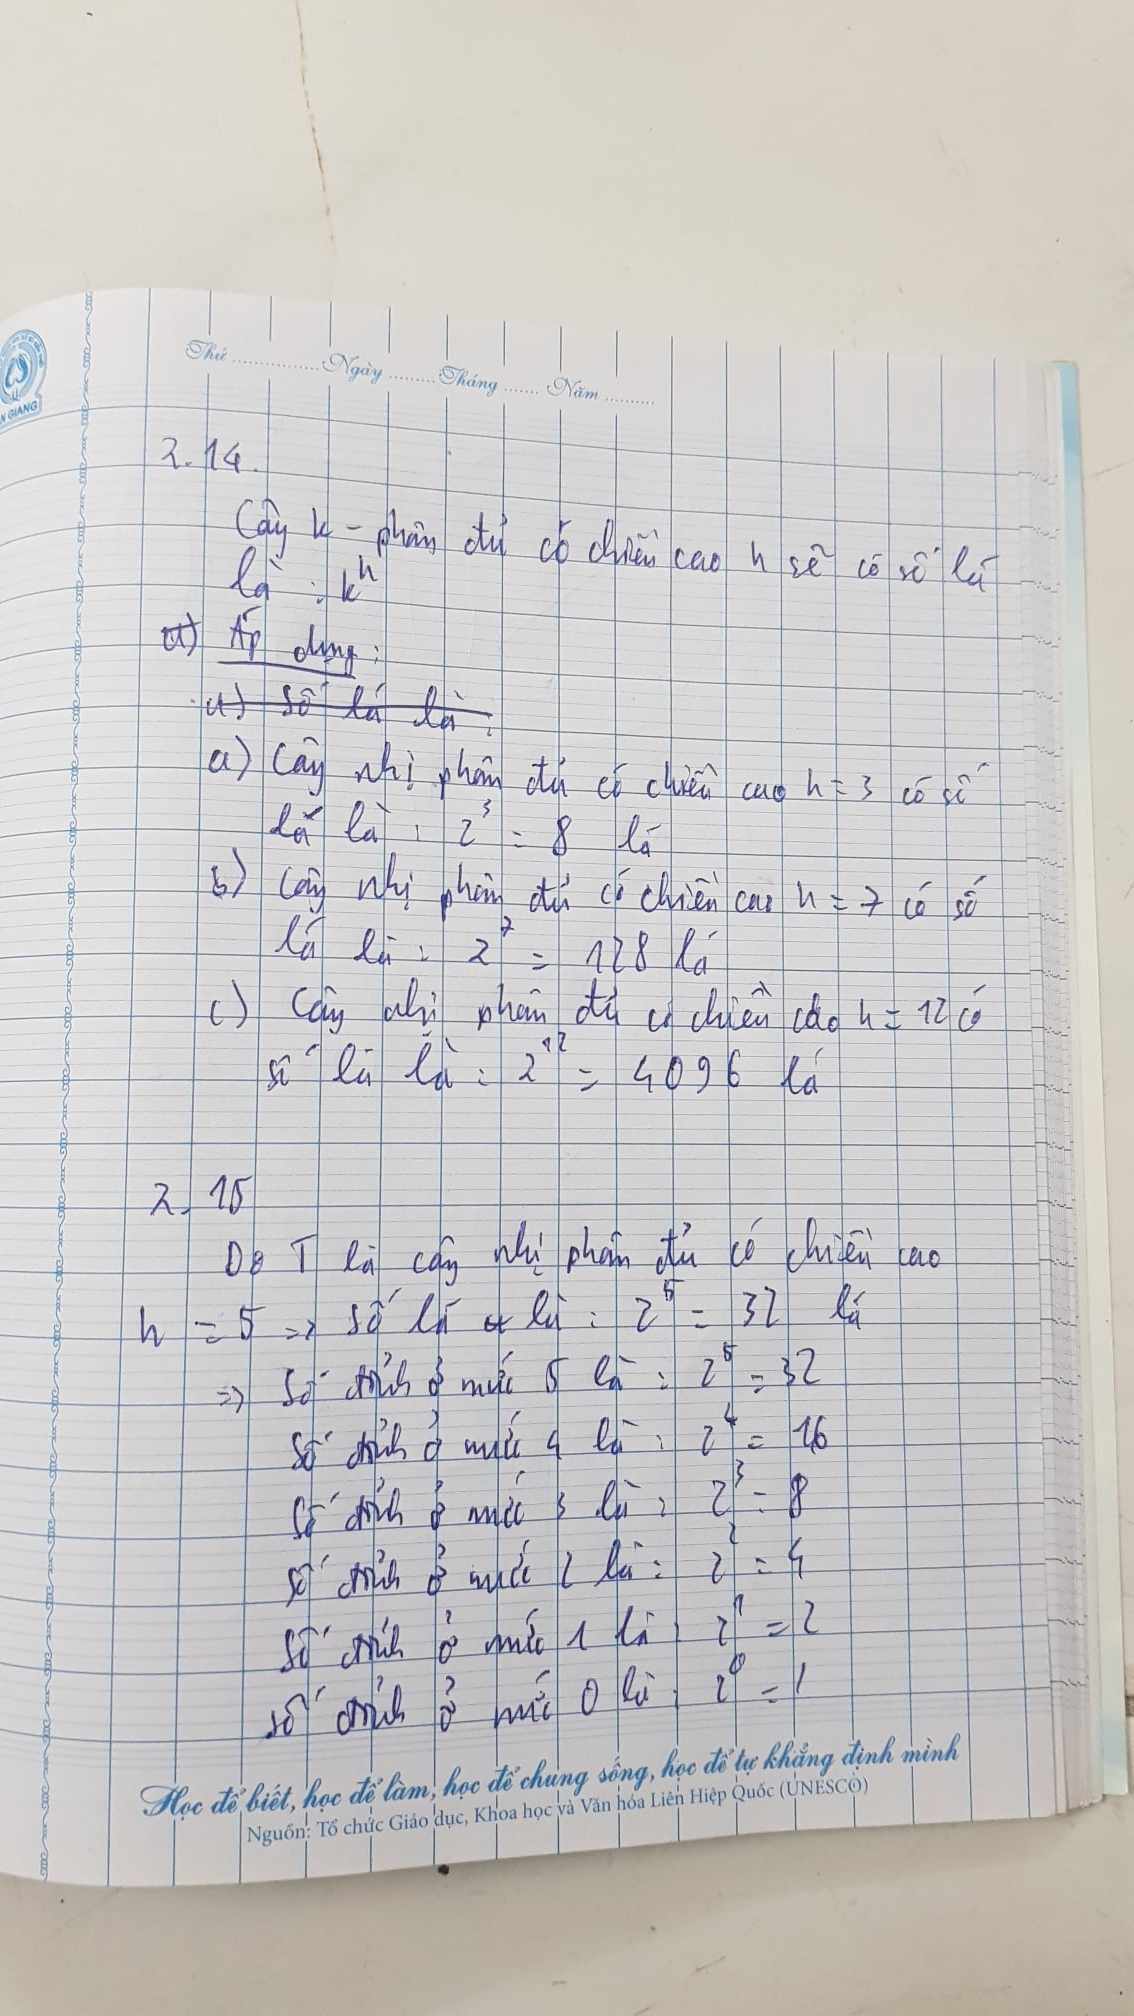 N GIANG
Thứ ................Ngày .........Tháng ....... Năm ..........
2.14.
Cây k - phân đủ có chiều cao h sẽ có số lá
là : k^h
a) Áp dụng :
a) Số lá là :
a) Cây nhị phân đủ có chiều cao h = 3 có số
lá là : 2^3 = 8 lá
b) Cây nhị phân đủ có chiều cao h = 7 có số
lá là : 2^7 = 128 lá
c) Cây nhị phân đủ có chiều cao h = 12 có
số lá là : 2^12 = 4096 lá
2.15
Do T là cây nhị phân đủ có chiều cao
h = 5 => số lá là : 2^5 = 32 lá
=> Số đỉnh ở mức 5 là : 2^5 = 32
Số đỉnh ở mức 4 là : 2^4 = 16
Số đỉnh ở mức 3 là : 2^3 = 8
Số đỉnh ở mức 2 là : 2^2 = 4
Số đỉnh ở mức 1 là : 2^1 = 2
Số đỉnh ở mức 0 là : 2^0 = 1
Học để biết, học để làm, học để chung sống, học để tự khẳng định mình
Nguồn: Tổ chức Giáo dục, Khoa học và Văn hóa Liên Hiệp Quốc (UNESCO)